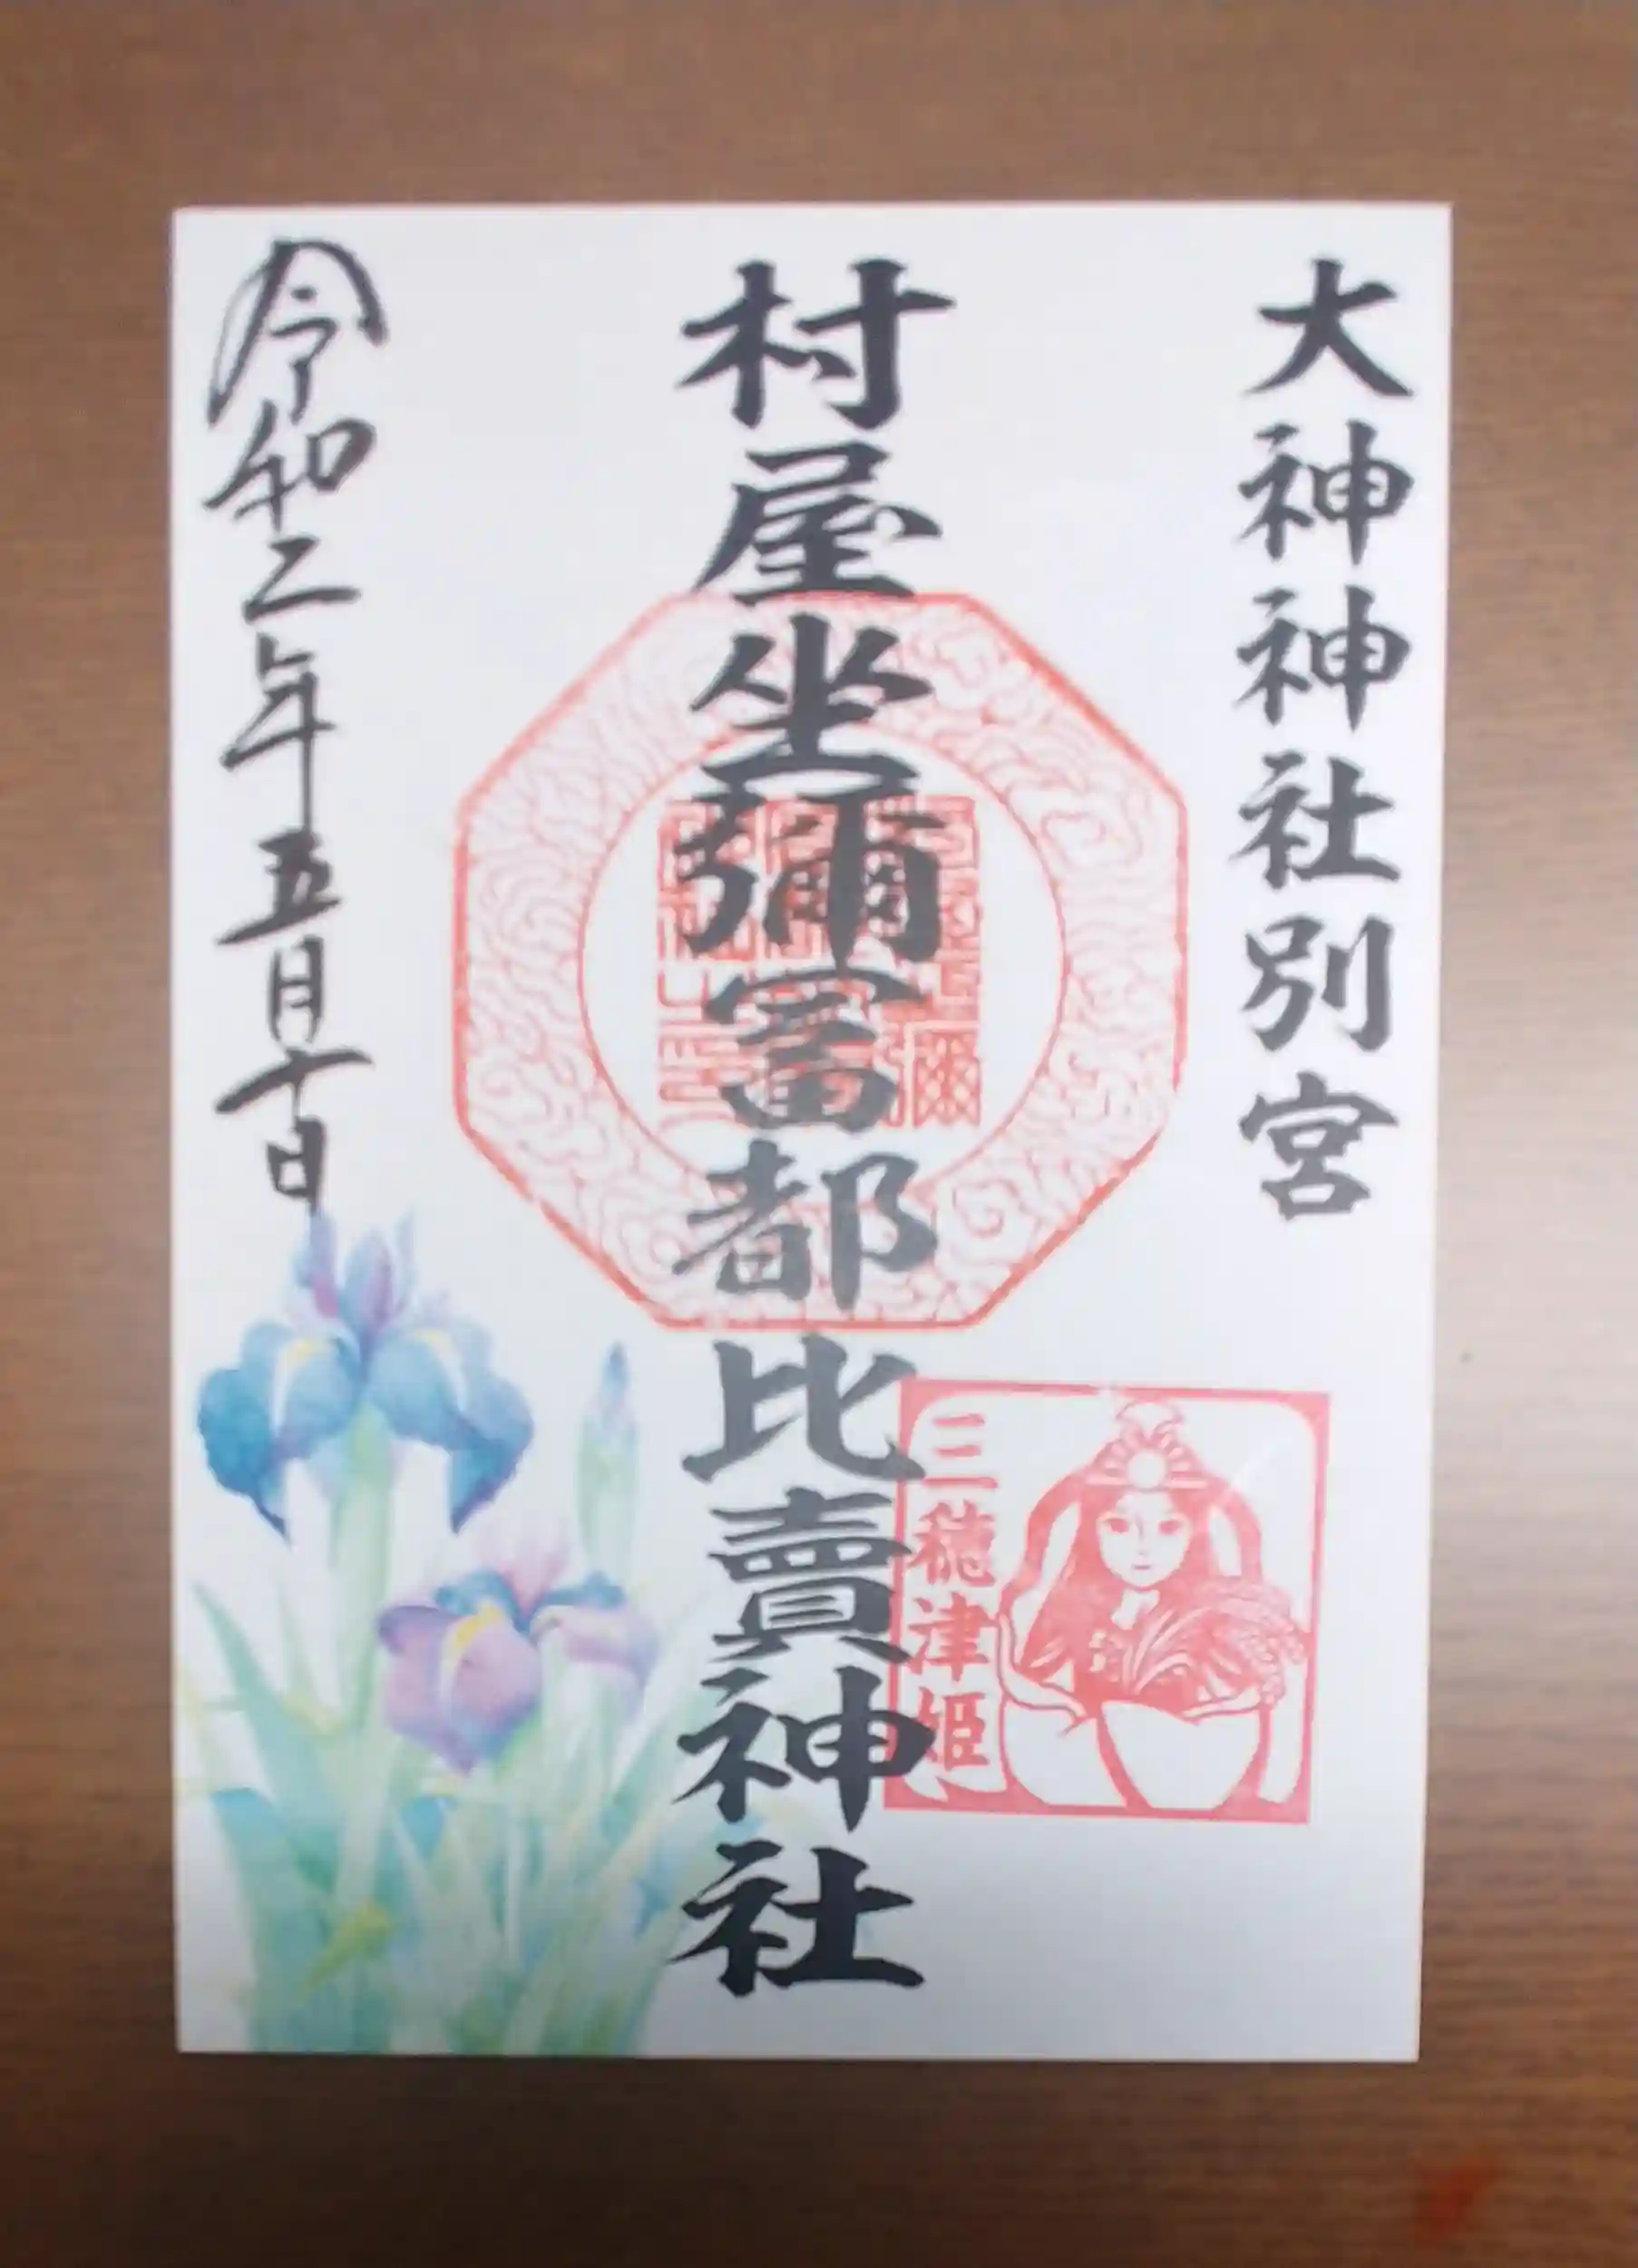 大神神社別宮
村屋坐彌冨都比賣神社
三穂津姫
令和二年五月十日